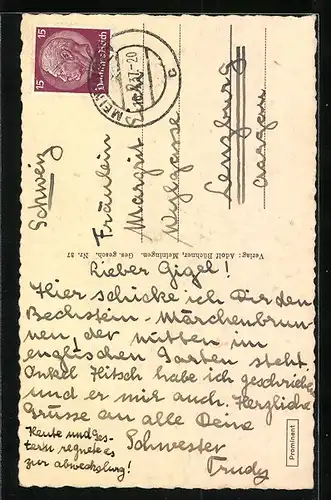 15 Deutsches Reich 15
MEI
37.-20
c
Schweiz
Fräulein
Margrit
Wylgasse
Lenzburg
Aargau
Verlag: Adolf Büchner, Meiningen. Ges. gesch. Nr. 37
Lieber Gigel!
Hier schicke ich Dir den
Bechstein-Märchenbrun-
nen, der mitten im
englischen Garten steht.
Onkel Hitsch habe ich geschrieben
und er mir auch. Herzliche
Grüsse an alle Deine
Schwester
Trudy
Heute und Ges-
tern regnete es
zur abwechslung!
Prominent